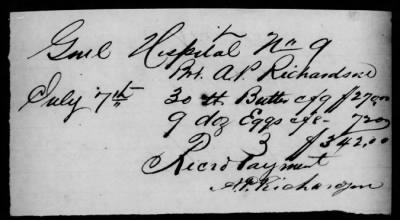 Genl Hospital No 9
Bot. A.P. Richardson
July 7th 30 lb Butter c/9 $270.00
9 doz Eggs c/8- 72.00
$342.00
Recd Payment
A.P. Richardson